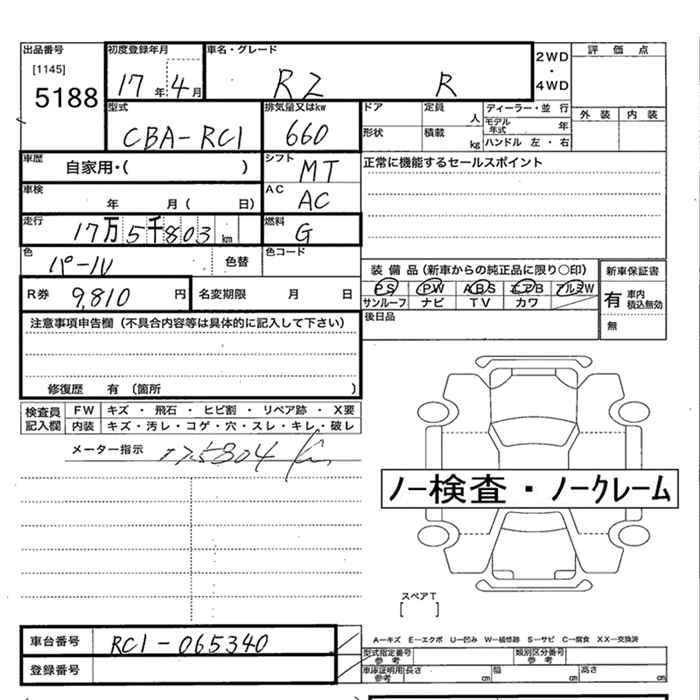 出品番号 初度登録年月 車名・グレード 2WD 評価点
[1145] ・
5188 17年 4月 RZ R 4WD
型式 排気量又はkw ドア 定員 人 ディーラー・並 行 外装 内装
CBA-RC1 660 モデル年式 年
形状 積載 kg ハンドル 左・右
車歴 自家用・( ) シフト MT 正常に機能するセールスポイント
車検 年 月( 日) AC AC
走行 17万5千803km 燃料 G
色 パール 色替 色コード
装備品(新車からの純正品に限り○印) 新車保証書
R券 9,810円 名変期限 月 日 PS PW ABS エアB アルミW 有 車内積込無効
サンルーフ ナビ TV カワ
注意事項申告欄(不具合内容等は具体的に記入して下さい) 後日品 無
修復歴 有(箇所 )
検査員記入欄 FW キズ・飛石・ヒビ割・リペア跡・X要
内装 キズ・汚レ・コゲ・穴・スレ・キレ・破レ
メーター指示 175804 km
ノー検査・ノークレーム
スペアT
[ ]
車台番号 RC1-065340 A―キズ E―エクボ U―凹み W―補修跡 S―サビ C―腐食 XX―交換済
型式指定番号参考 類別区分番号参考
登録番号 車庫証明用参考 長さ cm 幅 cm 高さ cm